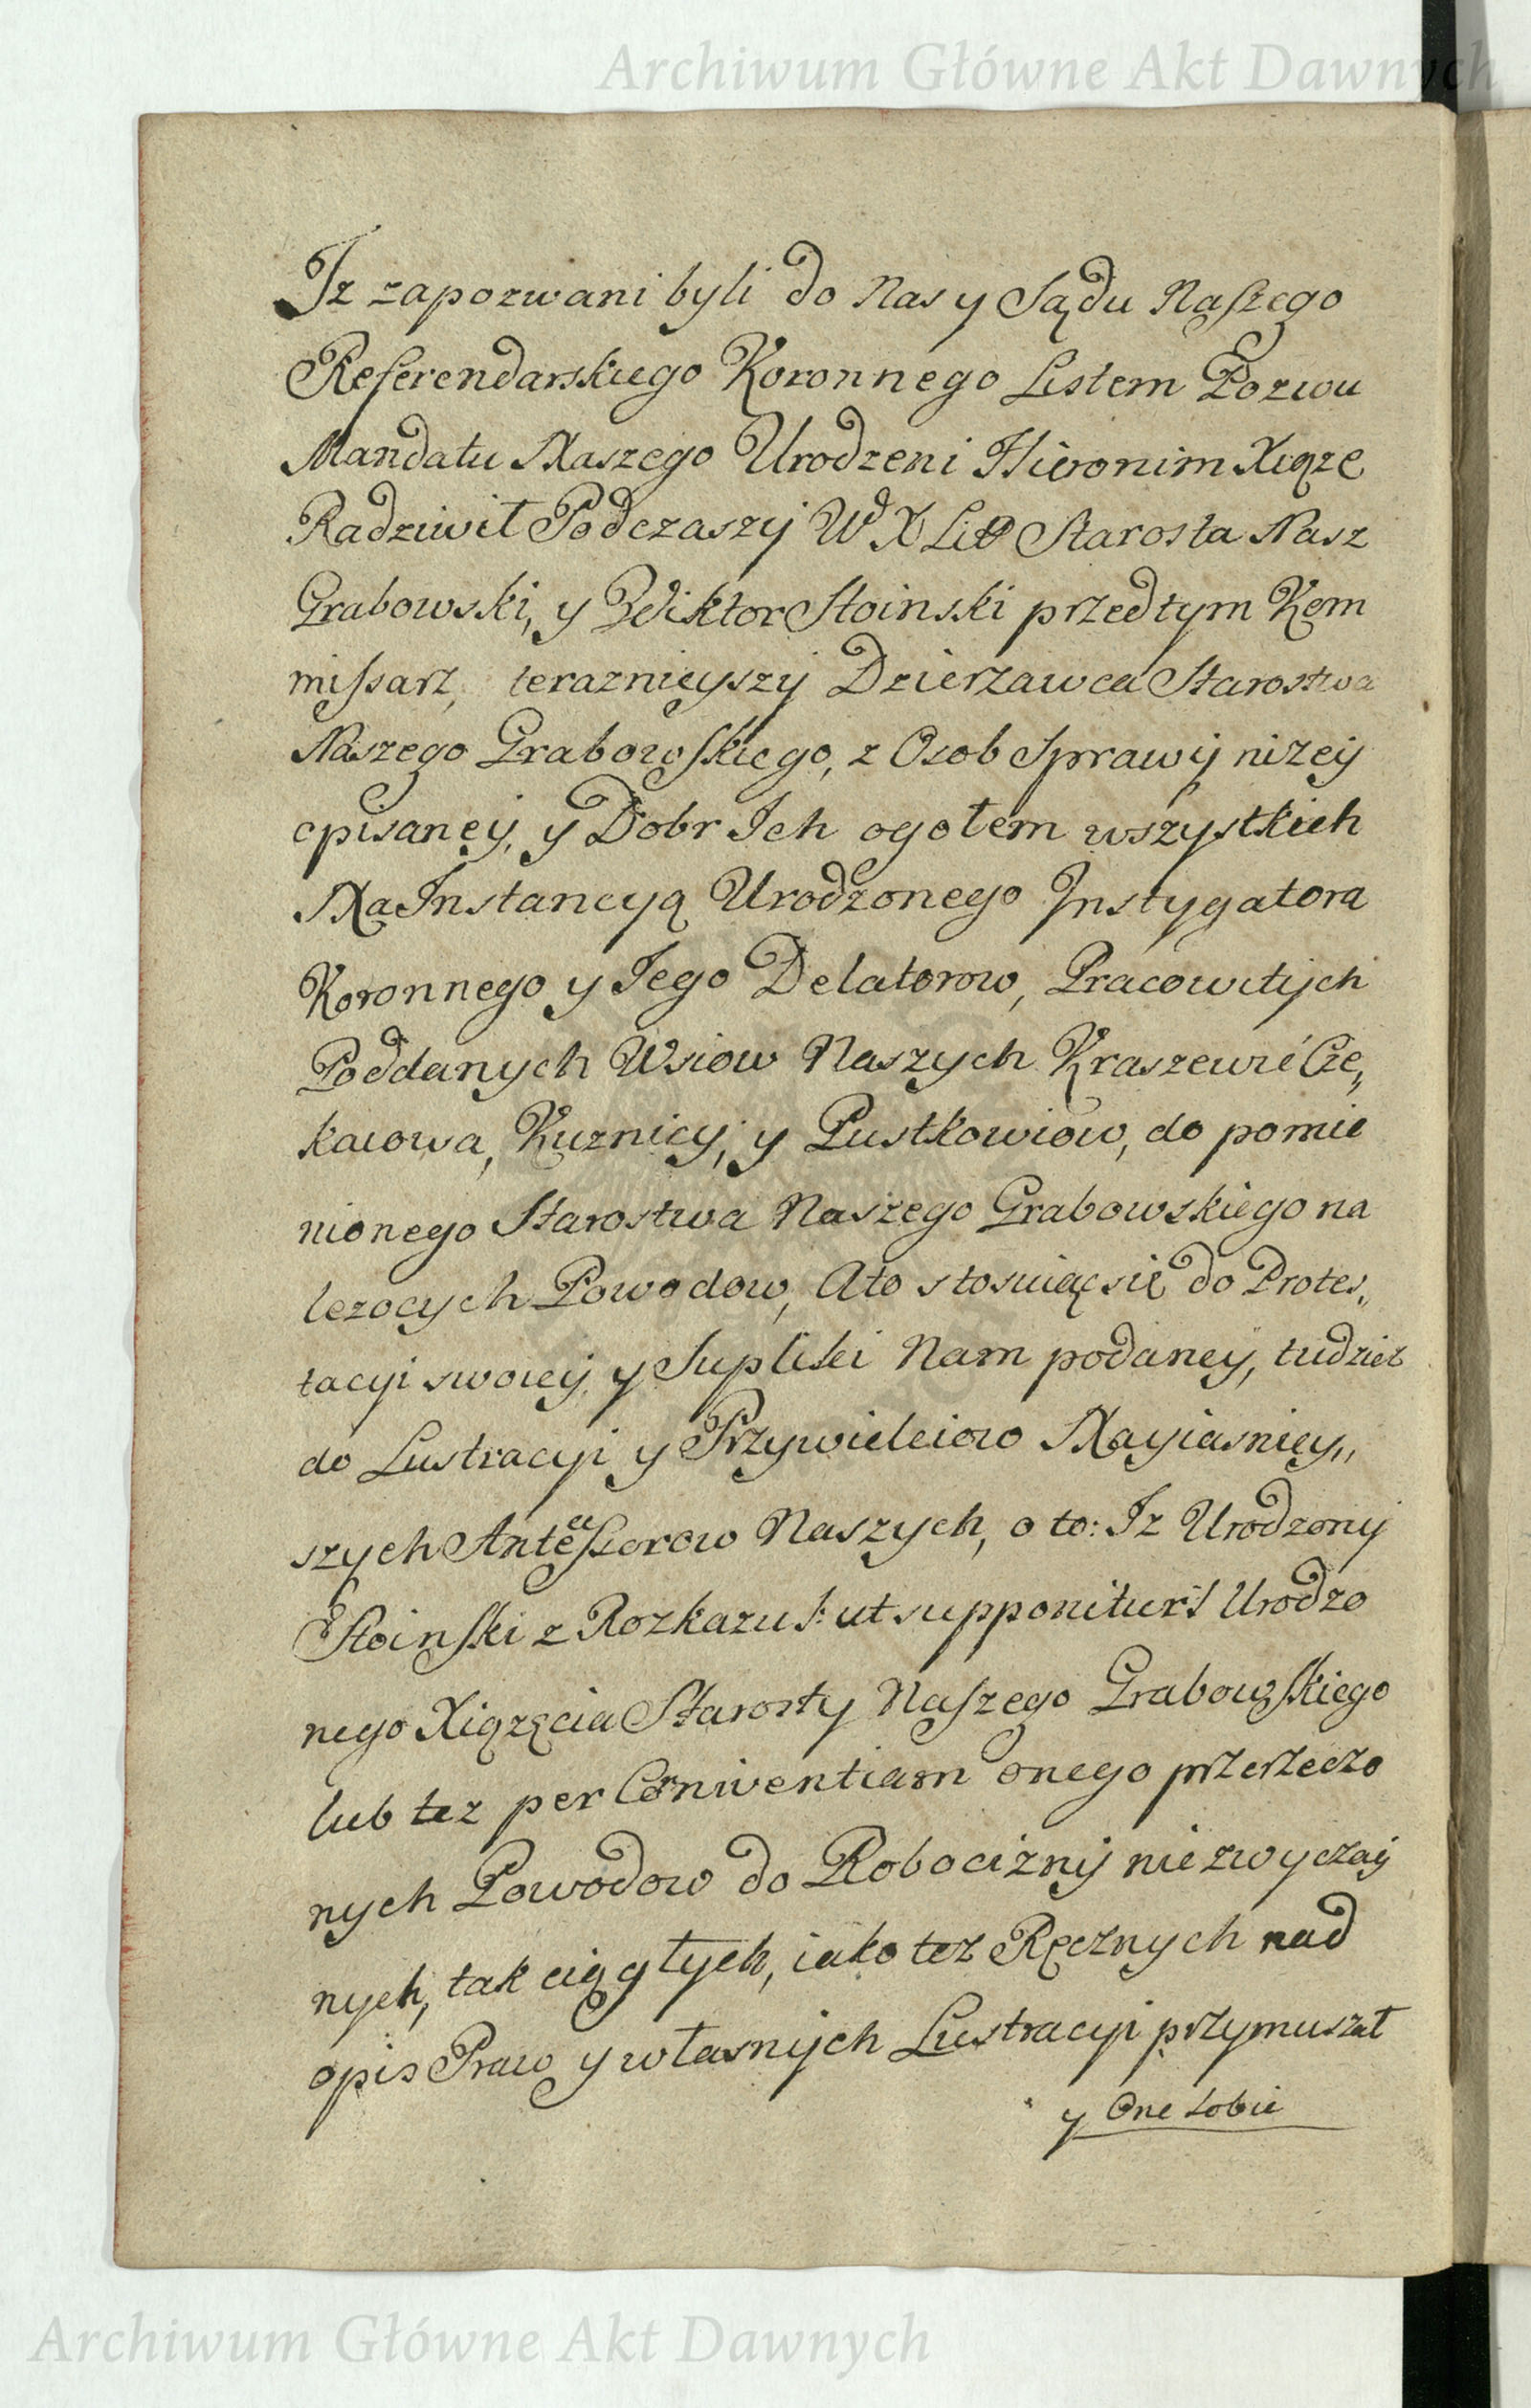 Archiwum Główne Akt Dawnych
Iz zapozwani byli do Nas y Sądu Naszego
Referendarskiego Koronnego Listem Pozwu
Mandatu Naszego Urodzeni Hieronim Xiąze
Radziwił Podczaszy W X Litt Starosta Nasz
Grabowski, y Wiktor Stoinski przedtym Kom
missarz, teraznieyszy Dzierzawca Starostwa
Naszego Grabowskiego, z Osob Sprawy nizey
opisaney, y Dobr Ich ogołem wszystkich
Na Instancyą Urodzonego Instygatora
Koronnego y Iego Delatorow, Pracowitych
Poddanych Wsiow Naszych Kraszewic Cze„
kaiowa, Kuznicy, y Pustkowiow, do pomie
nionego Starostwa Naszego Grabowskiego na
lezocych Powodow, Ato stosuiąc się do Protes„
tacyi swoiey, y Supliki Nam podaney, tudziez
do Lustracyi y Przywileiow Nayiasniey„
szych Antecessorow Naszych, o to: Iz Urodzony
Stoinski z Rozkazu /: ut supponitur :/ Urodzo
nego Xiązęcia Starosty Naszego Grabowskiego
lub tez per Conniventiam onego przerzeczo
nych Powodow do Robocizny niezwyczay
nych, tak ciągłych, iako tez Ręcznych nad
opis Praw y własnych Lustracyi przymuszał
y One sobie
Archiwum Główne Akt Dawnych